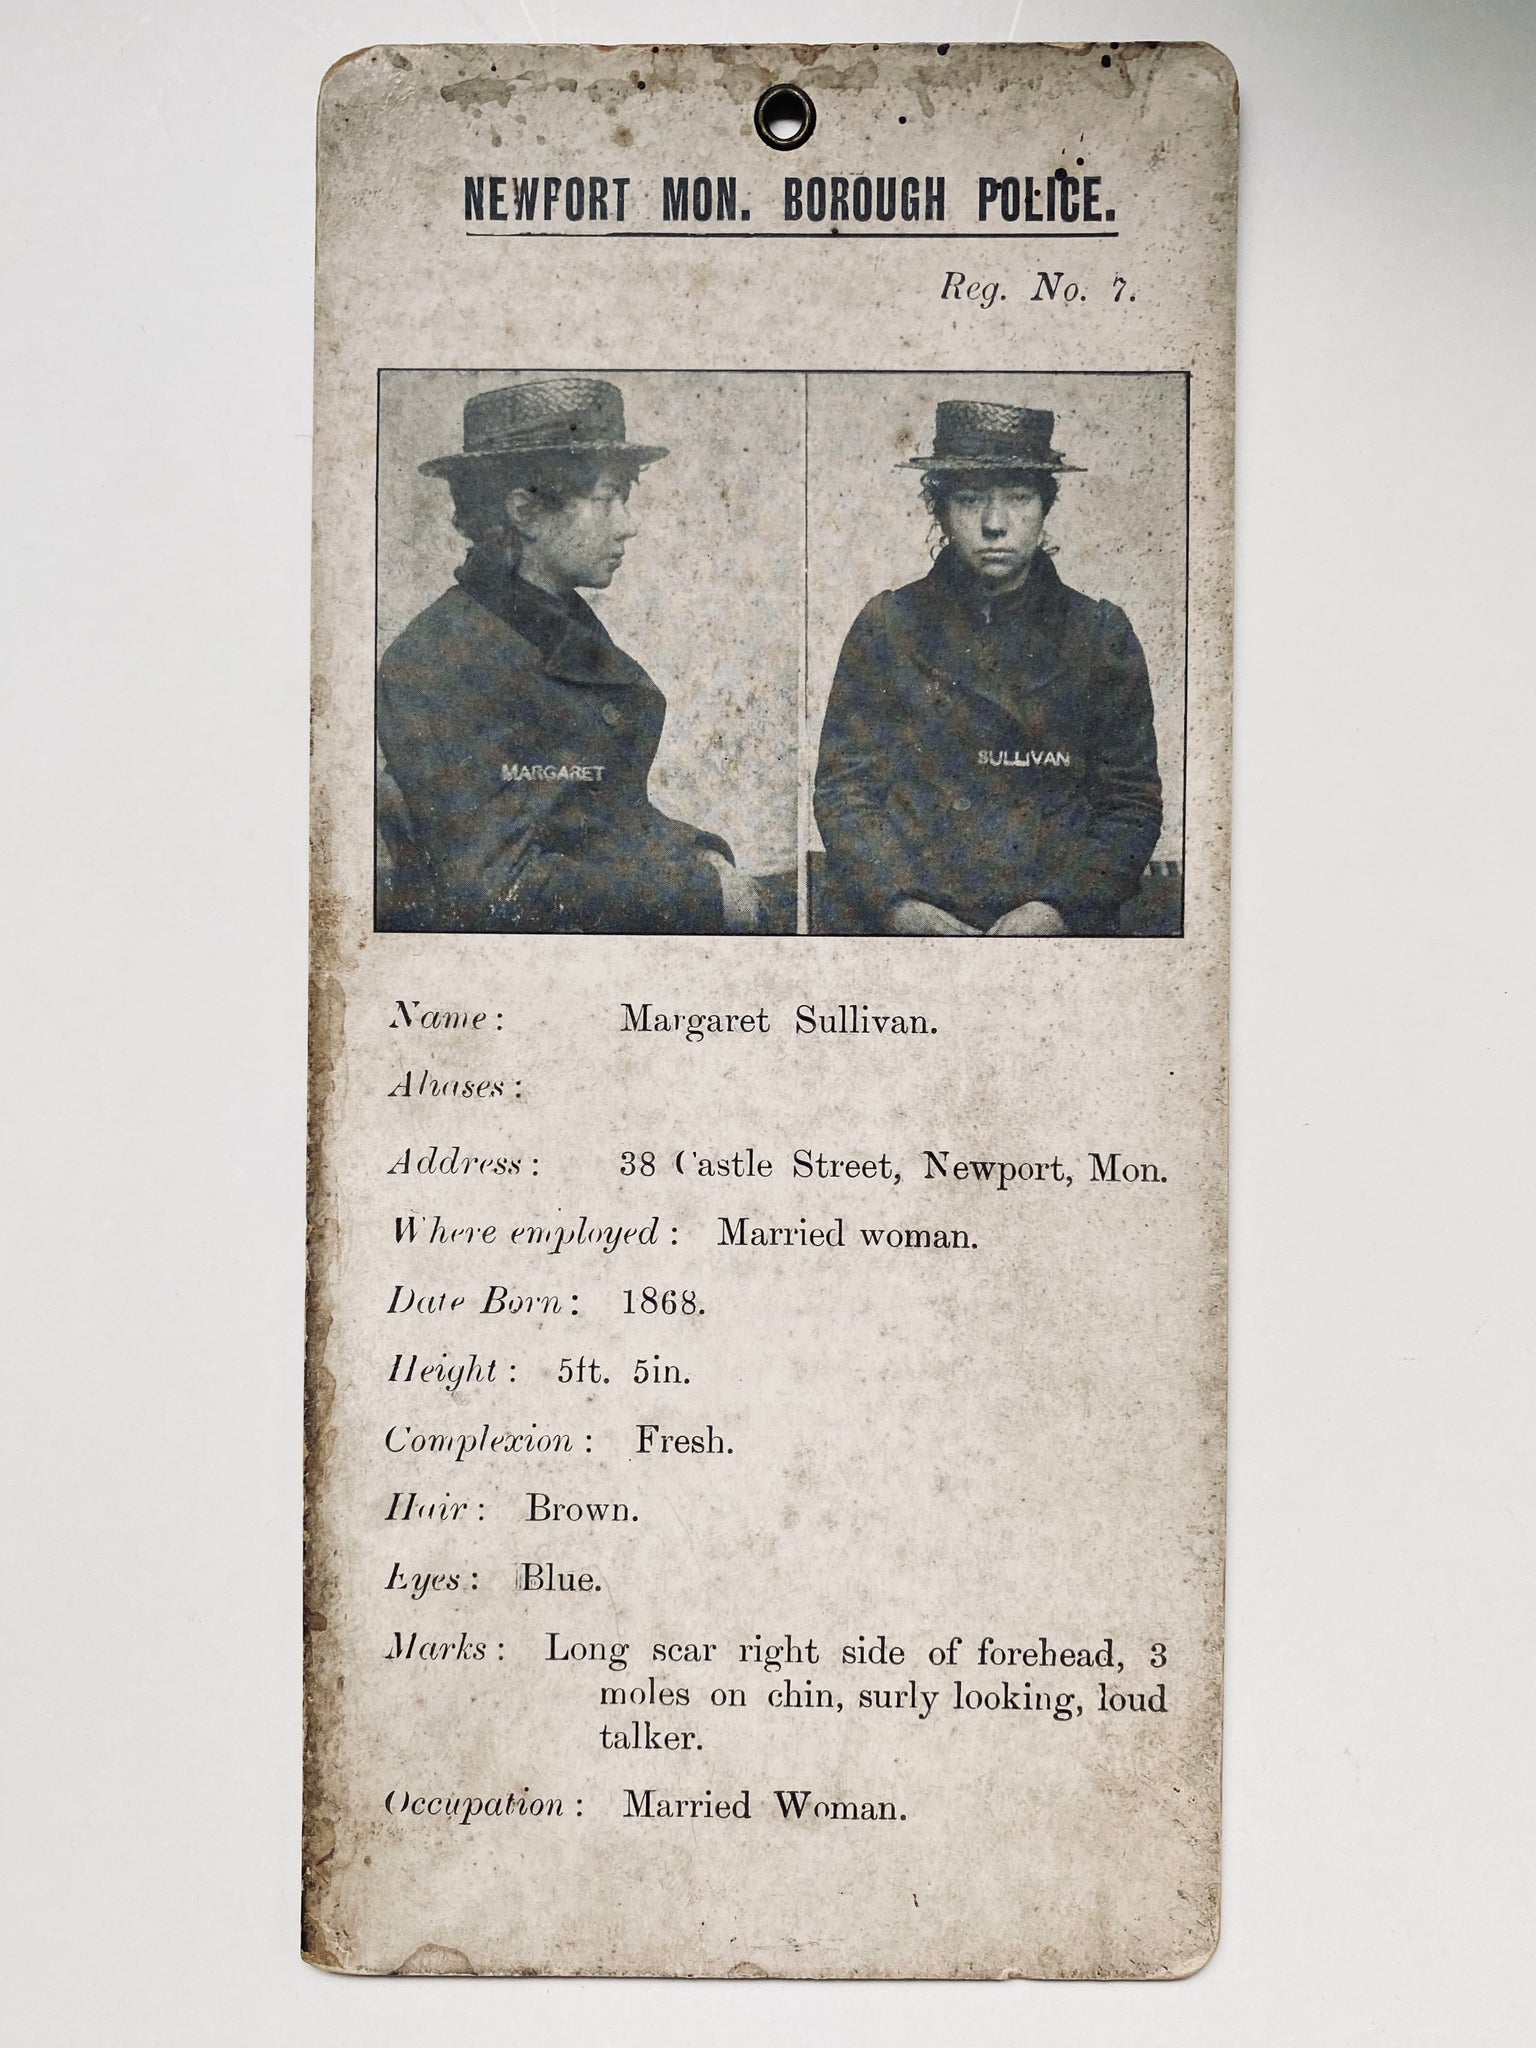 NEWPORT MON. BOROUGH POLICE.
Reg. No. 7.
MARGARET
SULLIVAN
Name: Margaret Sullivan.
Aliases:
Address: 38 Castle Street, Newport, Mon.
Where employed: Married woman.
Date Born: 1868.
Height: 5ft. 5in.
Complexion: Fresh.
Hair: Brown.
Eyes: Blue.
Marks: Long scar right side of forehead, 3
moles on chin, surly looking, loud
talker.
Occupation: Married Woman.